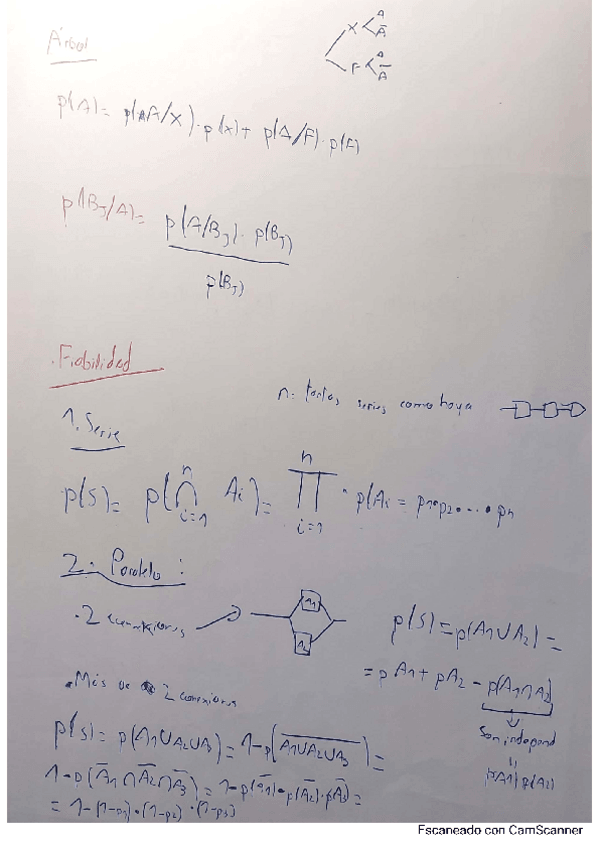 Árbol
X A
Ā
F A
Ā
p(A) = p(A/X)·p(X) + p(A/F)·p(F)
p(B_J/A) = p(A/B_J)·p(B_J)
p(B_J)
. Fiabilidad
n: tantas series como haya
1. Serie
p(S) = p(∩ⁿᵢ₌₁ Aᵢ) = ∏ⁿᵢ₌₁ · p(Aᵢ = p₁·p₂·...·pₙ
2. Paralelo:
· 2 conexiones
A₁
A₂
p(S) = p(A₁∪A₂) =
= pA₁ + pA₂ - p(A₁∩A₂)
Son independ
=
p(A₁) p(A₂)
. Más de 2 conexiones
p(S) = p(A₁∪A₂∪A₃) = 1-p(\overline{A₁∪A₂∪A₃}) =
1-p(Ā₁∩Ā₂∩Ā₃) = 1-p(Ā₁)·p(Ā₂)·p(Ā₃) =
= 1-(1-p₁)·(1-p₂)·(1-p₃)
Escaneado con CamScanner